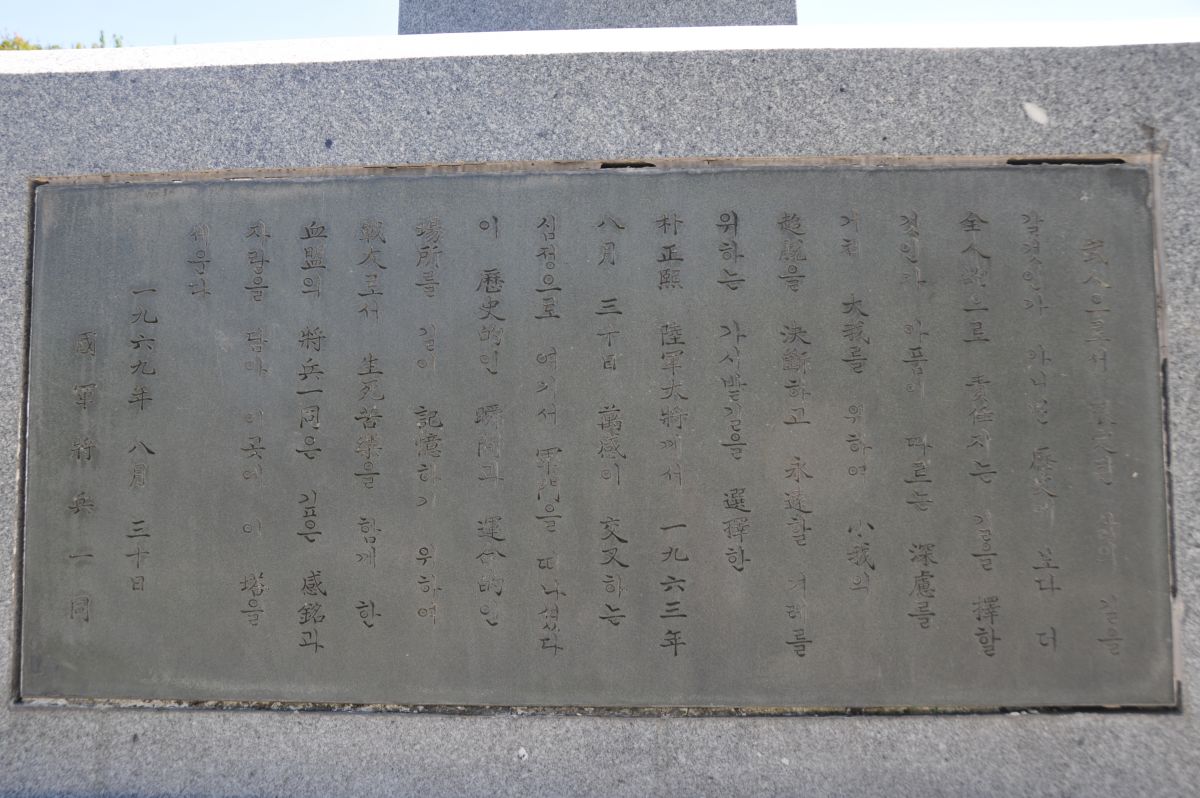 武人으로서 의 길을
갈것인가 아니면 歷史에 보다 더
全人的으로 責任지는 길을 擇할
것인가 아픔이 따르는 深慮를
거쳐 大我를 위하여 小我의
超脫을 決斷하고 永遠할 겨레를
위하는 가시밭길을 選擇한
朴正熙 陸軍大將께서 一九六三年
八月 三十日 萬感이 交叉하는
심정으로 여기서 軍門을 떠나섰다
이 歷史的인 瞬間과 運命的인
場所를 길이 記憶하기 위하여
戰友로서 生死苦樂을 함께 한
血盟의 將兵一同은 깊은 感銘과
자랑을 담아 이곳에 이 塔을
세운다
一九六九年 八月 三十日
國軍將兵一同